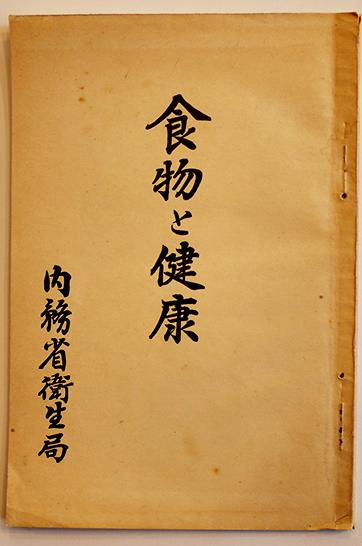 食物と健康
内務省衛生局